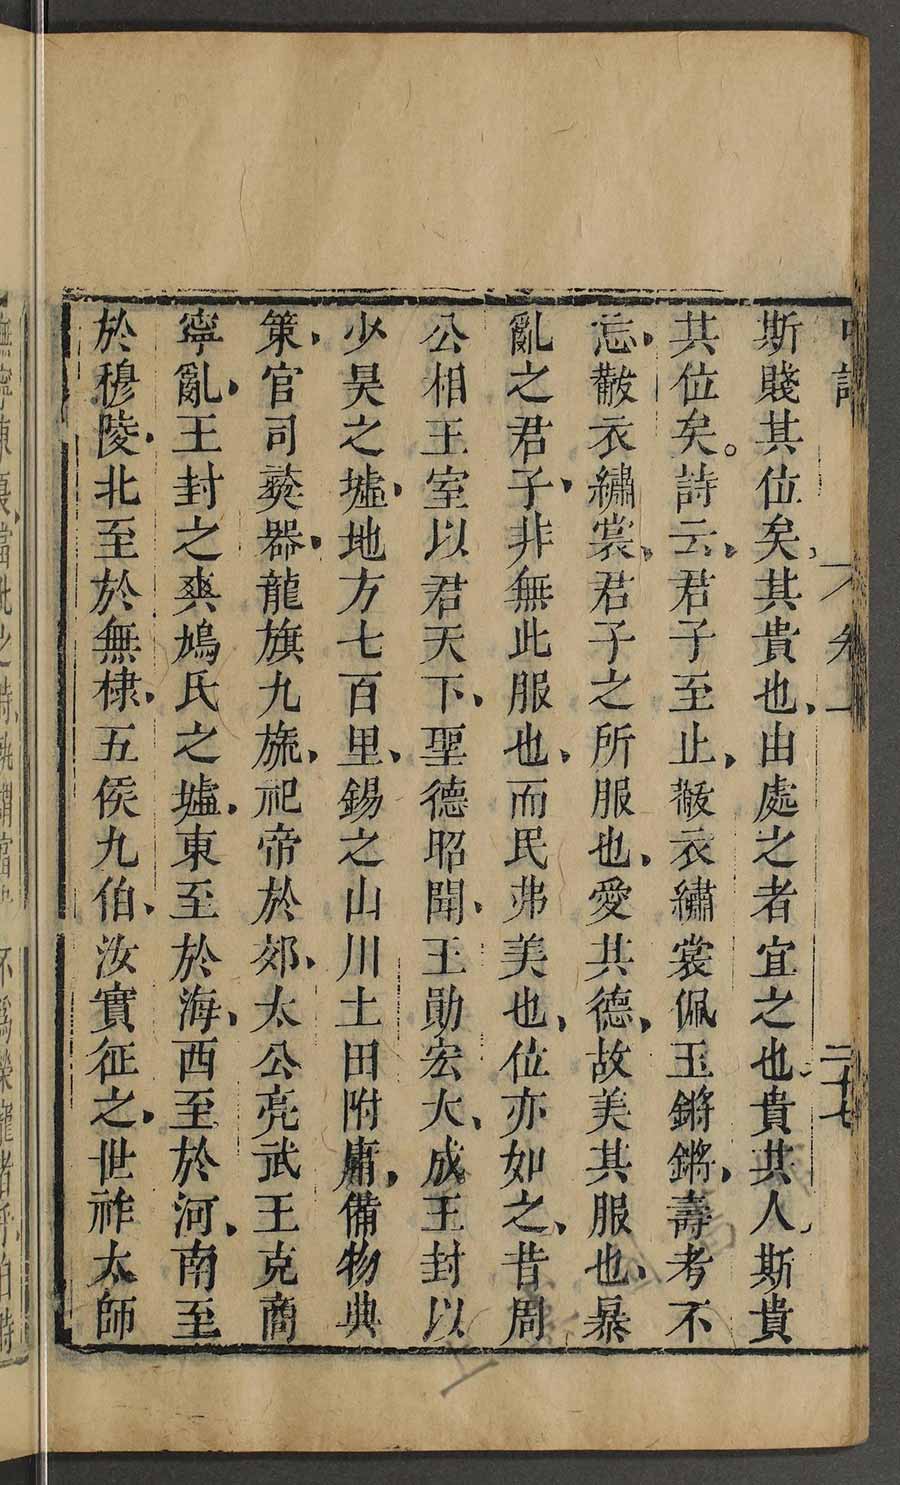 斯賤其位矣其貴也由處之者宜之也貴其人斯貴
其位矣。詩云君子至止黻衣繡裳佩玉鏘鏘壽考不
忘黻衣繡裳君子之所服也愛其德故美其服也暴
亂之君子非無此服也而民弗美也位亦如之昔周
公相王室以君天下聖德昭聞王勛宏大成王封以
少昊之墟地方七百里錫之山川土田附庸備物典
策官司彝器龍旗九旒祀帝於郊太公亮武王克商
寧亂王封之爽鳩氏之墟東至於海西至於河南至
於穆陵北至於無棣五侯九伯汝實征之世祚太師